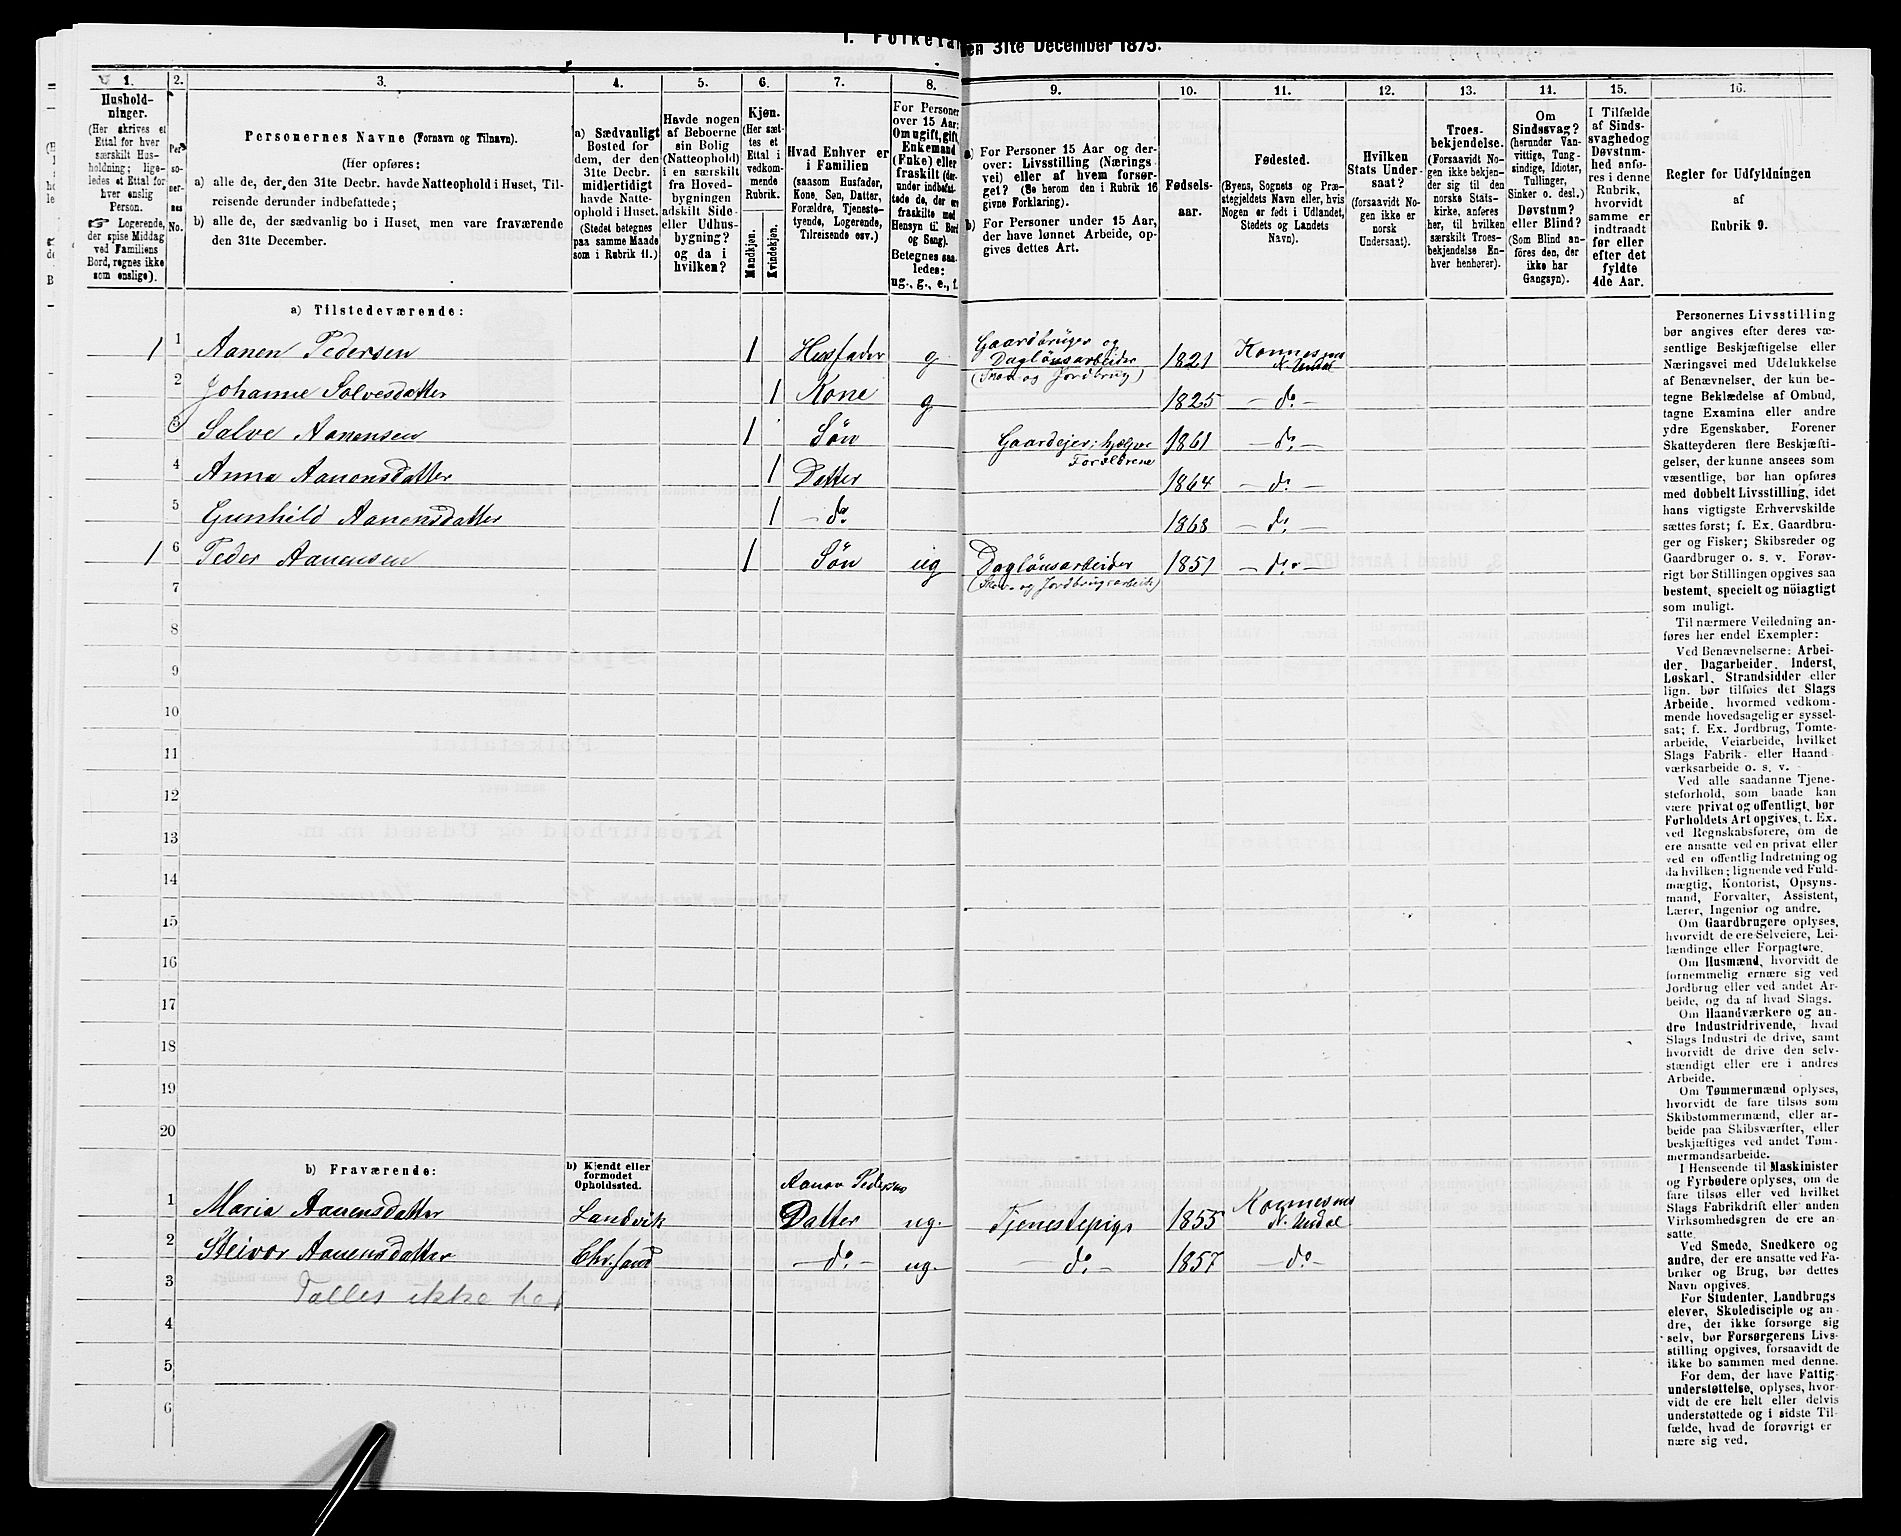 I. Folketæl
en 31te December 1875.
1.
2.
3.
4.
5.
6.
7.
8.
9.
10.
11.
12.
13.
14.
15.
16.
Hushold-
ninger.
(Her skrives et
Ettal for hver
særskilt Hus-
holdning; lige-
ledes et Ettal for
hver enslig
Person.
Logerende,
der spise Middag
ved Familiens
Bord, regnes ikke
som enslige).
Per-
so-
ner-
nes
No.
Personernes Navne (Fornavn og Tilnavn).
(Her opføres:
a) alle de, der den 31te Decbr. havde Natteophold i Huset, Til-
reisende derunder indbefattede;
b) alle de, der sædvanlig bo i Huset, men vare fraværende
den 31te December.
a) Sædvanligt
Bosted for
dem, der den
31te Decbr.
midlertidigt
havde Natte-
ophold i Huset.
(Stedet betegnes
paa samme Maade
som i Rubrik 11.)
Havde nogen
af Beboerne
sin Bolig
(Natteophold)
i en særskilt
fra Hoved-
bygningen
adskilt Side-
eller Udhus-
bygning?
og da i
hvilken?
Kjøn.
(Her sæt-
tes et
Ettal i
vedkom-
mende
Rubrik.
Mandkjøn.
Kvindekjøn.
Hvad Enhver er
i Familien
(saasom Husfader,
Kone, Søn, Datter,
Forældre, Tjeneste-
tyende, Logerende,
Tilreisende osv.)
For Personer
over 15 Aar:
Om ugift, gift,
Enkemand
(Enke) eller
fraskilt (der-
under indbefat-
tede de, der ere
fraskilte med
Hensyn til Bord
og Seng).
Betegnes saa-
ledes:
ug., g., e., f.
a) For Personer 15 Aar og der-
over: Livsstilling (Nærings-
vei) eller af hvem forsør-
get? (Se herom den i Rubrik 16
givne Forklaring).
b) For Personer under 15 Aar,
der have lønnet Arbeide, op-
gives dettes Art.
Fødsels-
aar.
Fødested.
(Byens, Sognets og Præ-
stegjeldets Navn eller, hvis
Nogen er født i Udlandet,
Stedets og Landets
Navn).
Hvilken
Stats Under-
saat?
(forsaavidt No-
gen ikke er
norsk
Undersaat).
Troes-
bekjendelse.
(Forsaavidt No-
gen ikke bekjen-
der sig til den
norske Stats-
kirke, anføres
her, til hvilken
særskilt Troes-
bekjendelse En-
hver henhører).
Om
Sindssvag?
(herunder Van-
vittige, Tung-
sindige, Idioter,
Tullinger,
Sinker o. desl.)
Døvstum?
eller Blind?
(Som Blind an-
føres den, der
ikke har
Gangsyn).
I Tilfælde
af Sinds-
svaghed og
Døvstum-
hed anfø-
res i denne
Rubrik,
hvorvidt
samme er
indtraadt
før eller
efter det
fyldte
4de Aar.
Regler for Udfyldningen
af
Rubrik 9.
a) Tilstedeværende:
1 1 Aanen Pedersen 1 Husfader g Gaardbruger og
Daglönsarbeider
(Skov og Jordbrug) 1821 Konnesmo
N. Undal
2 Johanne Solvesdatter 1 Kone g 1825 — do —
3 Salve Aanensen 1 Søn Gaardejer; hjelper
Forældrene 1861 — do —
4 Anna Aanensdatter 1 Datter 1864 — do —
5 Gunhild Aanensdatter 1 — do 1868 — do —
1 6 Peder Aanensen 1 Søn ug Daglönsarbeider
(Skov- og Jordbrugsarbeide) 1851 — do —
7
8
9
10
11
12
13
14
15
16
17
18
19
20
b) Fraværende:
b) Kjendt eller
formodet
Opholdssted.
Aanen Pedersens
1 Maria Aanensdatter Landvik Datter ug. Tjenestepige 1855 Konnesmo
N. Undal
2 Steivor Aanensdatter Chr.sand — do — ug. — do — 1857 — do —
3 Tælles ikke her
4
5
6
Personernes Livsstilling
bør angives efter deres væ-
sentlige Beskjæftigelse eller
Næringsvei med Udelukkelse
af Benævnelser, der kun be-
tegne Beklædelse af Ombud,
tagne Examina eller andre
ydre Egenskaber. Forener
Skatteyderen flere Beskjæfti-
gelser, der kunne ansees som
væsentlige, bør han opføres
med dobbelt Livsstilling, idet
hans vigtigste Erhvervskilde
sættes først; f. Ex. Gaardbru-
ger og Fisker; Skibsreder og
Gaardbruger o. s. v. Forøv-
rigt bør Stillingen opgives saa
bestemt, specielt og nöiagtigt
som muligt.
Til nærmere Veiledning an-
føres her endel Exempler:
Ved Benævnelserne: Arbei-
der, Dagarbeider, Inderst,
Løskarl, Strandsidder eller
lign. bør tilføies det Slags
Arbeide, hvormed vedkom-
mende hovedsagelig er syssel-
sat; f. Ex. Jordbrug, Tomte-
arbeide, Veiarbeide, hvilket
Slags Fabrik- eller Haand-
værksarbeide o. s. v.
Ved alle saadanne Tjene-
steforhold, som baade kan
være privat og offentligt, bør
Forholdets Art opgives, t. Ex.
ved Regnskabsførere, om de
ere ansatte ved en privat eller
ved en offentlig Indretning og
da hvilken; lignende ved Fuld-
mægtig, Kontorist, Opsyns-
mand, Forvalter, Assistent,
Lærer, Ingeniør og andre.
Om Gaardbrugere oplyses,
hvorvidt de ere Selveiere, Lei-
lændinge eller Forpagtere.
Om Husmænd, hvorvidt de
fornemmelig ernære sig ved
Jordbrug eller ved andet Ar-
beide, og da af hvad Slags.
Om Haandværkere og an-
dre Industridrivende, hvad
Slags Industri de drive, samt
hvorvidt de drive den selv-
stændigt eller ere i andres
Arbeide.
Om Tømmermænd oplyses,
hvorvidt de fare tilsøs som
Skibstømmermænd, eller ar-
beide paa Skibsværfter, eller
beskjæftiges ved andet Tøm-
mermandsarbeide.
I Henseende til Maskinister
og Fyrbødere oplyses, om de
fare tilsøs eller ved hvilket
Slags Fabrikdrift eller anden
Virksomhedsgren de ere an-
satte.
Ved Smede, Snedkere og
andre, der ere ansatte ved Fa-
briker og Brug, bør dettes
Navn opgives.
For Studenter, Landbrugs-
elever, Skoledisciple og an-
dre, der ikke forsørge sig
selv, bør Forsørgerens Livs-
stilling opgives, forsaavidt de
ikke bo sammen med denne.
For dem, der have Fattig-
understøttelse, oplyses, hvor-
vidt de ere helt eller delvis
understøttede og i sidste Til-
fælde, hvad de forøvrigt er-
nære sig ved.